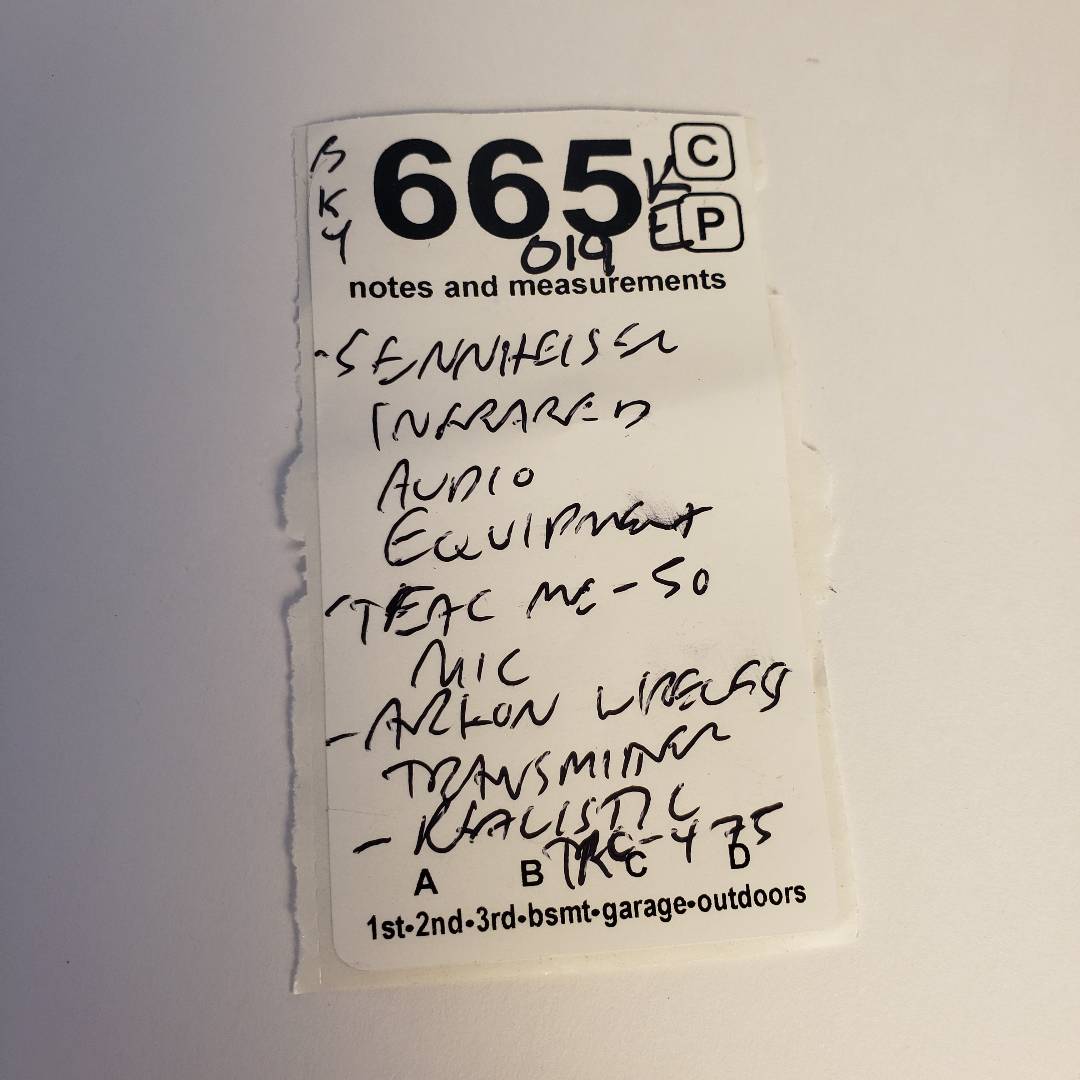 BKY
665
C
KE
P
019
notes and measurements
-SENNHEISER
INFRARED
AUDIO
EQUIPMENT
-TEAC ME-50
MIC
-ARKON WIRELESS
TRANSMITTER
-REALISTIC
TRC-475
A B C D
1st•2nd•3rd•bsmt•garage•outdoors